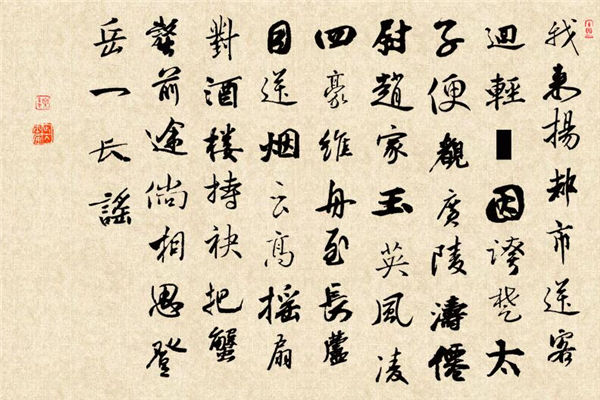 我來揚都市送客
迴輕■因誇楚太
子便觀廣陵濤僊
尉趙家玉英風凌
四豪維舟至長蘆
目送烟云高摇扇
對酒楼持袂把蟹
螯前途倘相思登
岳一长謠